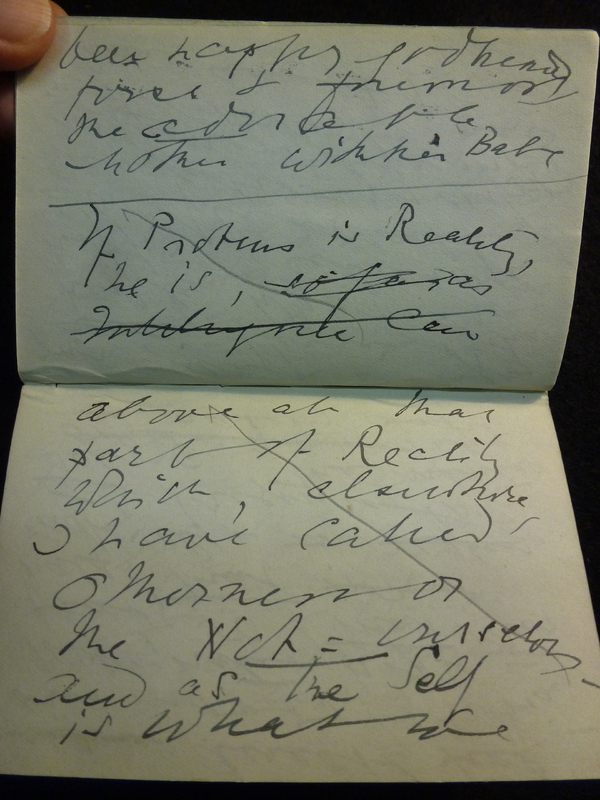 been happy godhead
first & foremost
the adorable
Mother with her Babe
If Proteus is Reality,
he is, so far as
Intelligence can
above all that
part of Reality
which, elsewhere,
I have called
Otherness or
the Not = ourselves,
and as the Self
is what we